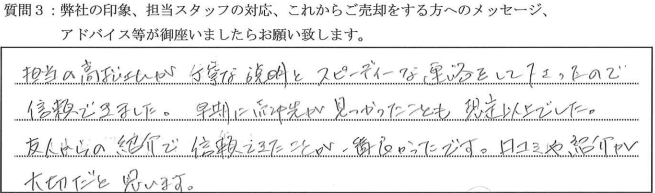 質問3：弊社の印象、担当スタッフの対応、これからご売却をする方へのメッセージ、
アドバイス等が御座いましたらお願い致します。
担当の高おさんが 丁寧な説明と スピーディーな 連絡をして下さったので
信頼できました。 早期に 売却先が 見つかったことも 想定以上でした。
友人からの 紹介で 信頼できたことが 一番良かったです。口コミや紹介が
大切だと 思います。